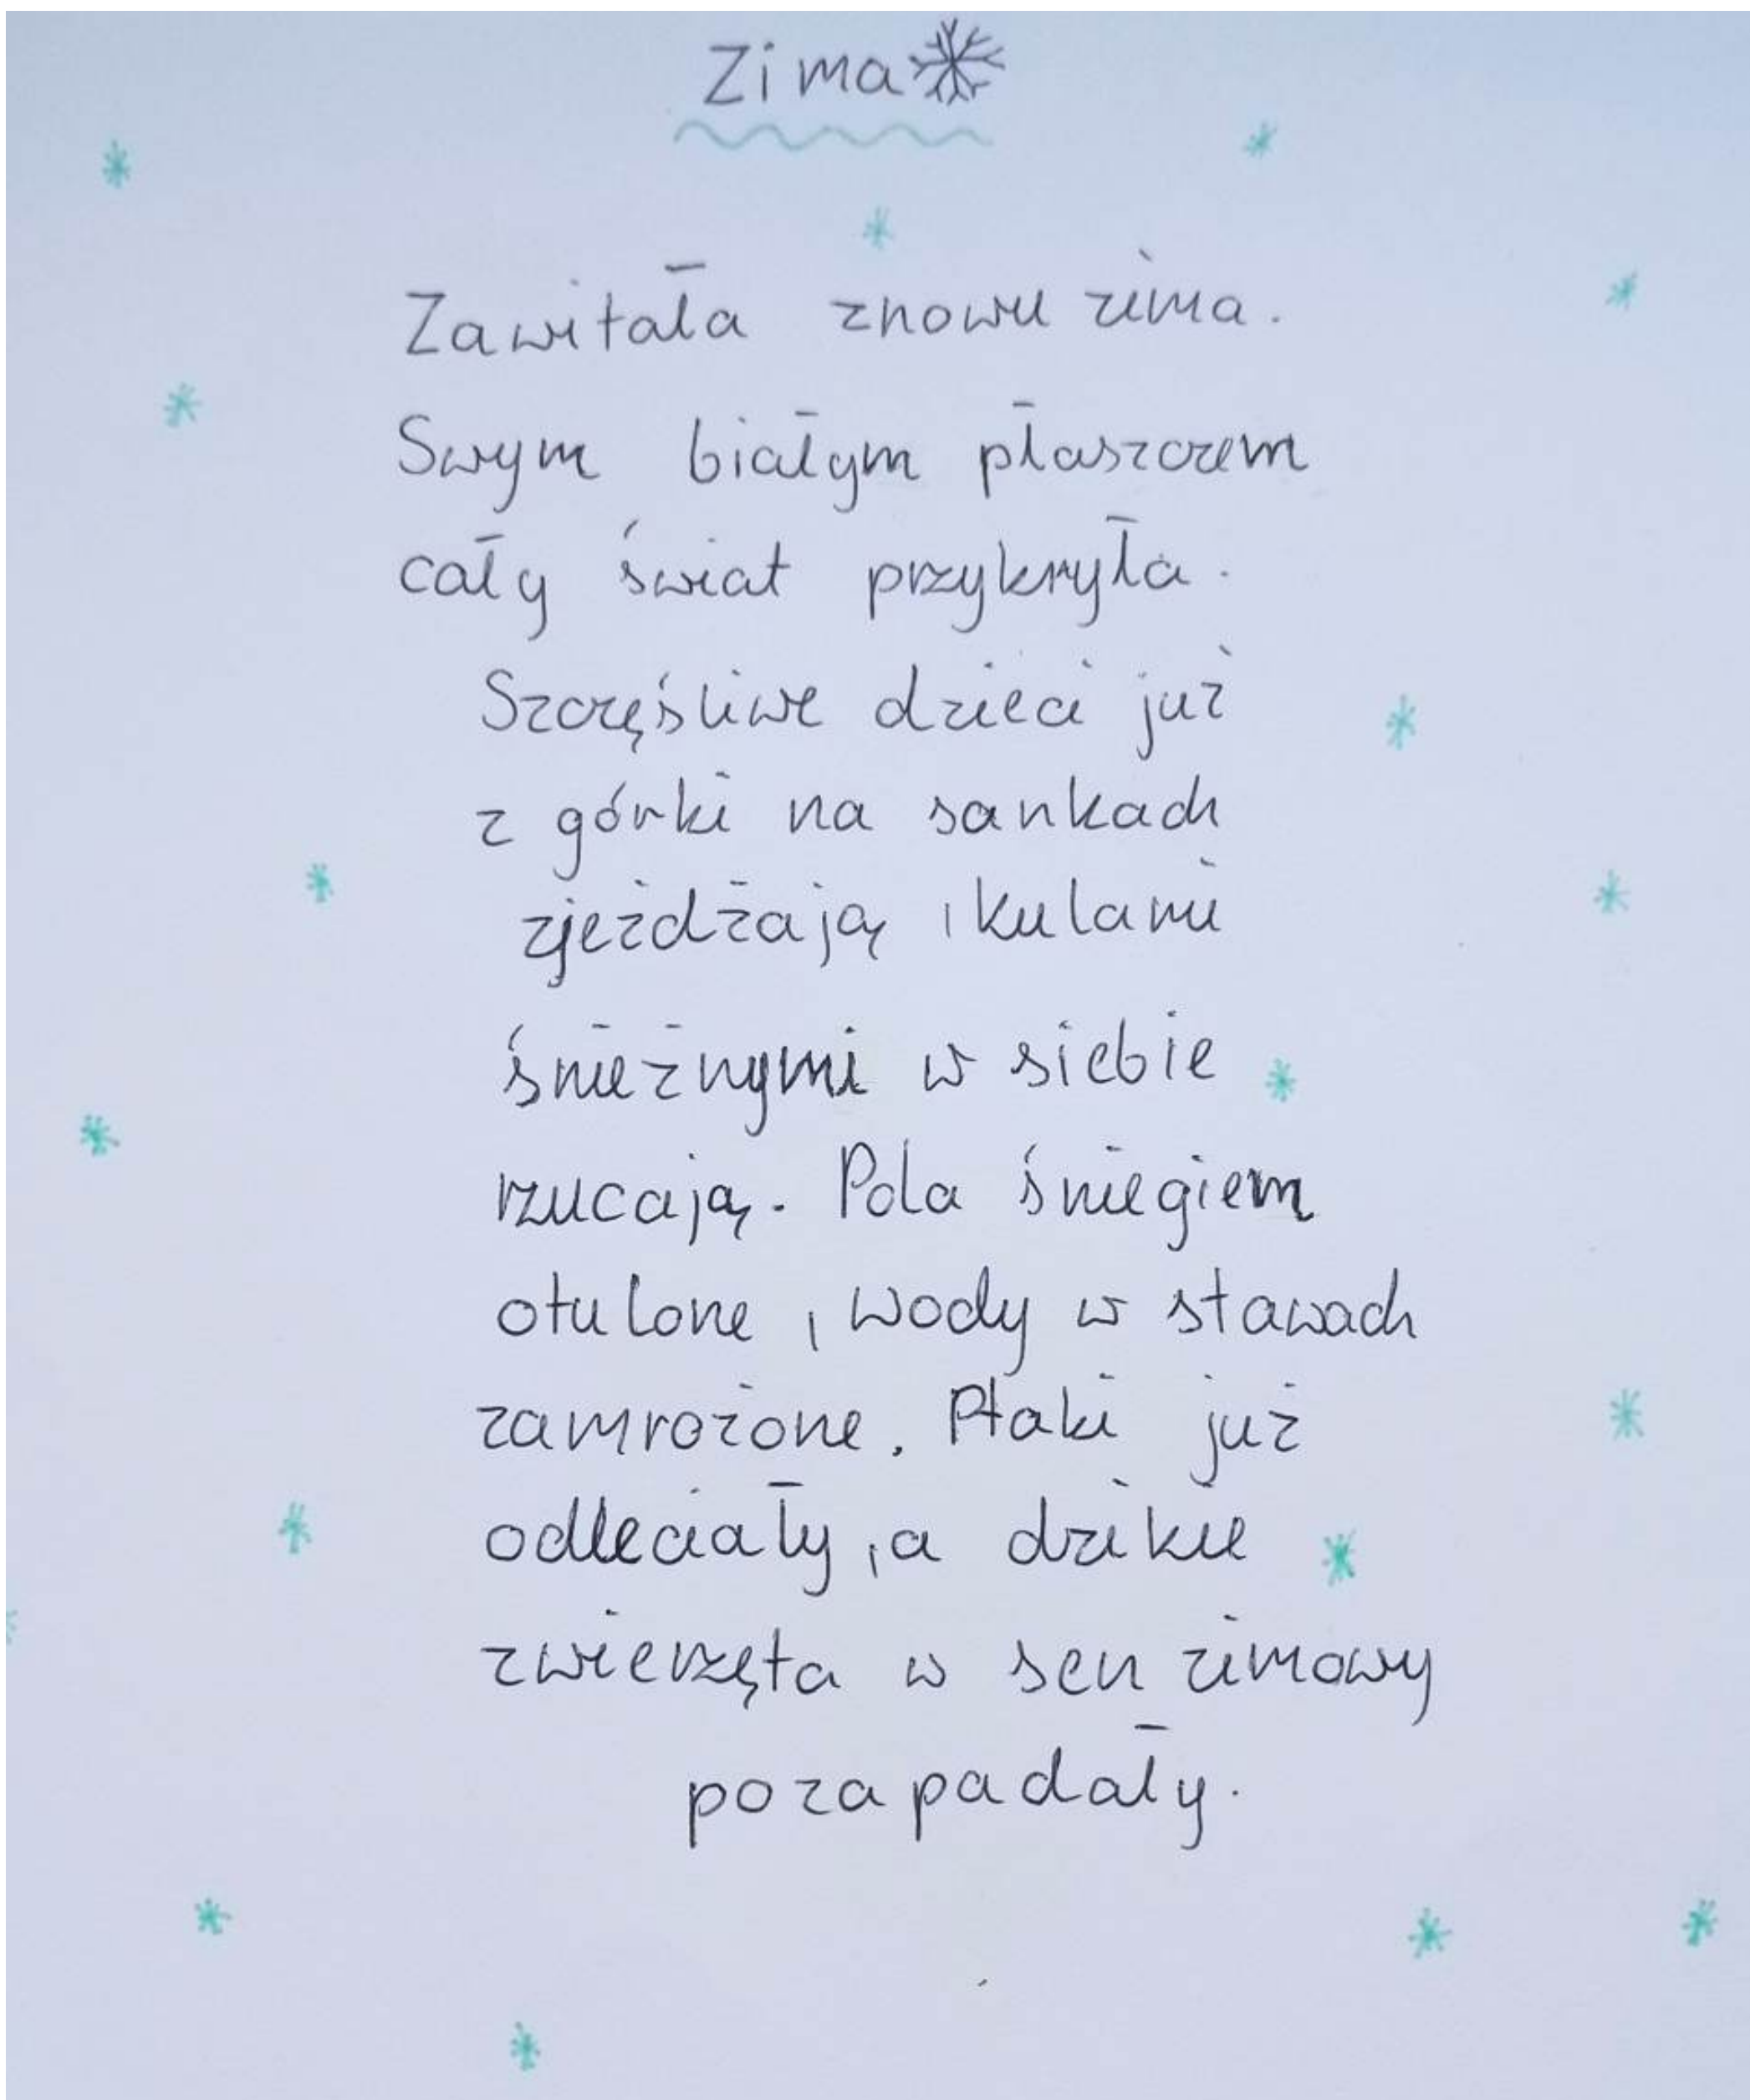 Zima
Zawitała znowu zima.
Swym białym płaszczem
cały świat przykryła.
Szczęśliwe dzieci już
z górki na sankach
zjeżdżają i kulami
śnieżnymi w siebie
rzucają. Pola śniegiem
otulone, wody w stawach
zamrożone. Ptaki już
odleciały, a dzikie
zwierzęta w sen zimowy
pozapadały.